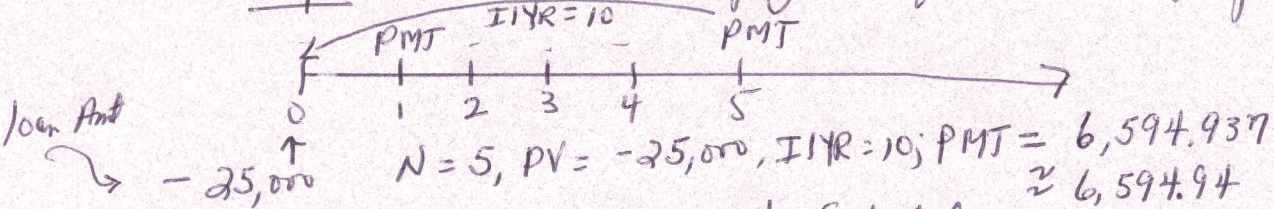 I/YR = 10
PMT - - - PMT
0 1 2 3 4 5
loan Amt
- 25,000
N = 5, PV = -25,000, I/YR = 10; PMT = 6,594.937
≈ 6,594.94